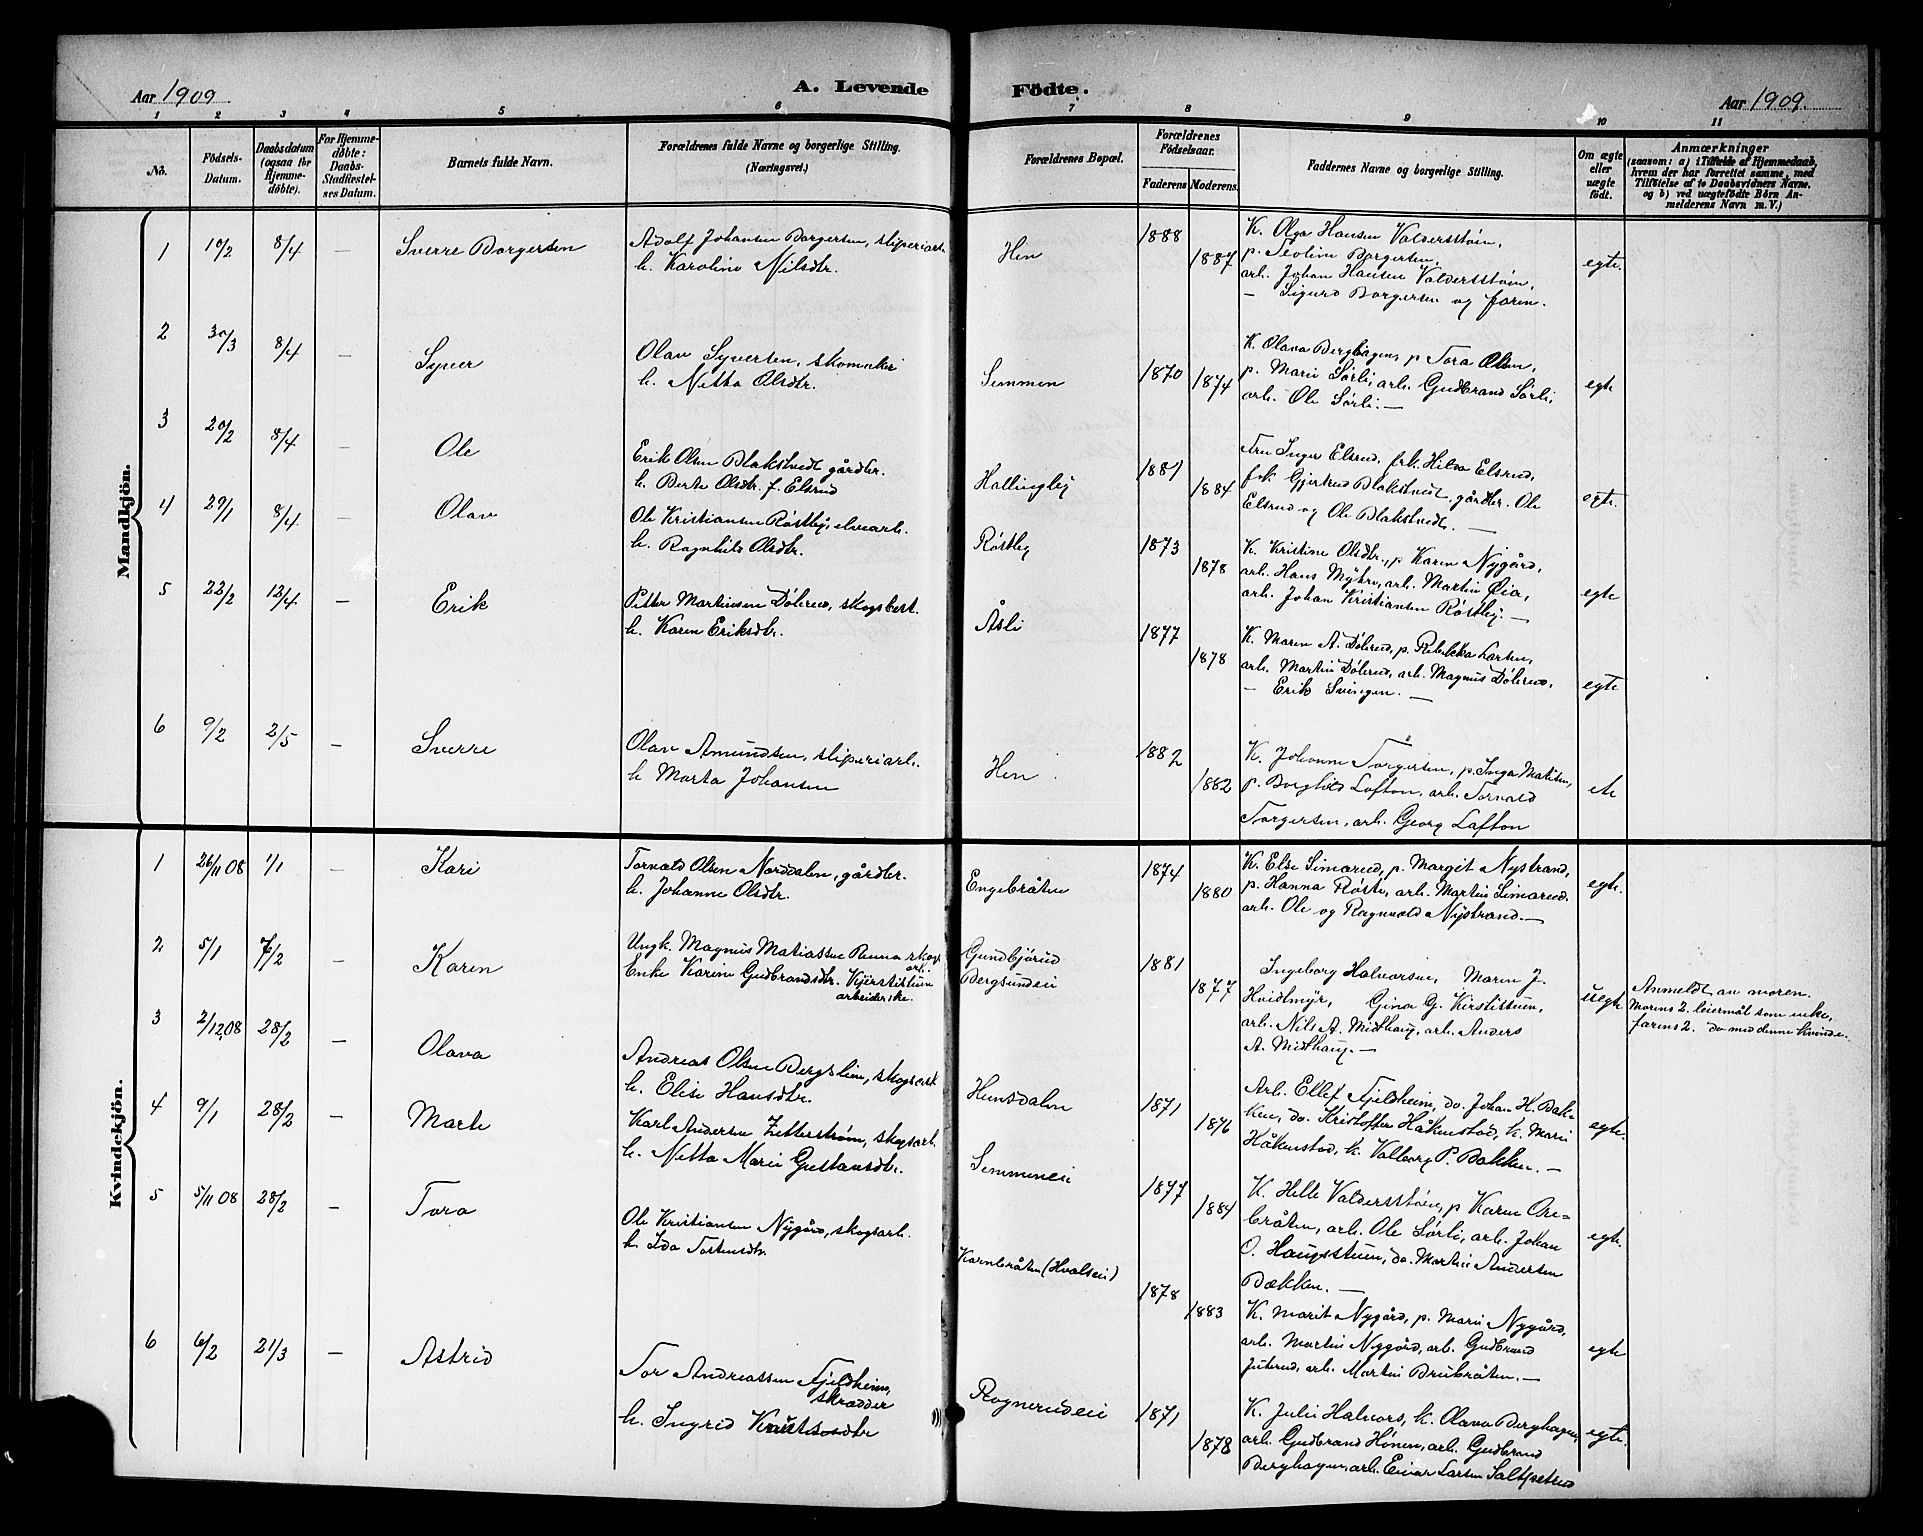 Aar 1909. A. Levende Födte. Aar 1909.
1 2 3 4 5 6 7 8 9 10 11
No.
Födsels-Datum.
Daabsdatum (ogsaa for Hjemmedöbte).
For Hjemmedöbte: Daabs-Stadfæstelses Datum.
Barnets fulde Navn.
Forældrenes fulde Navne og borgerlige Stilling. (Næringsvei.)
Forældrenes Bopæl.
Forældrenes Födselsaar. Faderens Moderens.
Faddernes Navne og borgerlige Stilling.
Om ægte eller uægte födt.
Anmærkninger
(saasom: a) i Tilfælde af Hjemmedaab,
hvem der har forrettet samme, med
Tilföielse af to Daabsvidners Navne,
og b) ved uægtefödte Börn An-
melderens Navn m. V.)
Mandkjön.
1 10/2 8/4 — Sverre Borgersen
Adolf Johansen Borgersen, sliperiarb.
h. Karoline Nilsdtr.
Hen 1888 1887
K. Olga Hansen Valdersstøen,
p. Teoline Borgersen,
arb. Johan Hansen Valdersstøen,
— Sigurd Borgersen og faren.
egte.
2 30/3 8/4 — Syver
Olav Syversen, skomaker
h. Netta Olsdtr.
Semmen 1870 1874
K. Olava Berghagen, p. Tora Olsen,
p. Marie Sørli, arb. Gudbrand Sørli,
arb. Ole Sørli. —
egte
3 20/2 8/4 — Ole
Erik Olsen Blakstvedt gårdbr.
h. Berte Olsdtr. f. Elsrud
Hallingby 1881 1884
Fru Inger Elsrud, frk. Hilda Elsrud,
frk. Gjertrud Blakstvedt, gårdbr. Ole
Elsrud og Ole Blakstvedt. —
egte.
4 29/1 8/4 — Olav
Ole Kristiansen Røstby, elvearb.
h. Ragnhild Olsdtr.
Røstby 1873 1878
K. Kristine Olsdtr., p. Karen Nygård,
arb. Hans Myhre, arb. Martin Øia,
arb. Johan Kristiansen Røstby. —
egte
5 22/2 12/4 — Erik
Petter Martinsen Dølerud, skogsbest.
h. Karen Eriksdtr.
Åsli 1877 1878
K. Maren A. Dølerud, p. Rebekka Larsen,
arb. Martin Dølerud, arb. Magnus Dølerud,
— Erik Svingen. —
egte
6 9/2 2/5 — Sverre
Olav Amundsen, sliperiarb.
h. Marta Johansen
Hen. 1882 1882
K. Johanne Torgersen, p. Inga Matisen,
p. Borghild Lafton, arb. Torvald
Torgersen, arb. Georg Lafton
Kvindekjön.
1 26/11 08 1/1 — Kari
Torvald Olsen Norddalen, gårdbr.
h. Johanne Olsdtr.
Engebråten 1874 1880
K. Else Simarud, p. Margit Nystrand,
p. Hanna Røste, arb. Martin Simarud,
arb. Ole og Ragnvald Nystrand. —
egte.
2 5/1 7/2 — Karen
Ungk. Magnus Matiassen Panna skogs
arb.
Enke Karin Gudbrandsdtr. Kjerstistuen
arbeiderske.
Gundbjørud
Bergsundeie
1881 1877
Ingeborg Halvorsen, Maren J.
Hvidtmyr, Gina G. Kirstistuen,
arb. Nils A. Midthaug, arb. Anders
A. Midthaug. —
uegte
Anmeldt av moren.
Morens 2. leiermål som enke,
farens 2. do med denne kvinde.
3 2/12 08 28/2 — Olava
Andreas Olsen Bergslien, skogsarb
h. Elise Hansdtr.
Hensdalen 1871 1876
Arb. Ellef Fjeldheim, do. Johan H. Bak-
ken, do. Kristoffer Håkenstad, k. Marie
Håkenstad, k. Valborg P. Bakken. —
egte.
4 9/1 28/2 — Marte
Karl Andersen Zetterstrøm, skogsarb.
h. Netta Marie Gustavsdtr.
Semmeneie 1877 1884
K. Helle Valdersstøen, p. Karen Ore-
bråten, arb. Ole Sørli, arb. Johan
O. Haugsstuen, do. Martin Andersen
Bakken. —
egte.
5 5/11 08 28/2 — Tora
Ole Kristiansen Nygård, skogsarb.
h. Ida Torstensdtr.
Kornbråten (Hvalseie) 1878 1883
K. Marit Nygård, p. Marie Nygård,
arb. Martin Nygård, arb. Gudbrand
Juterud, arb. Martin Brubråten. —
egte
6 6/2 21/3 — Astrid
Tor Andreassen Fjeldheim,
skrædder
h. Ingrid Knutsdtr
Rognerudeie 1871 1878
K. Julie Halvors, k. Olava Berghagen,
arb. Gudbrand Hønen, arb. Gudbrand
Berghagen, arb. Einar Larsen Saltpeterud
egte.